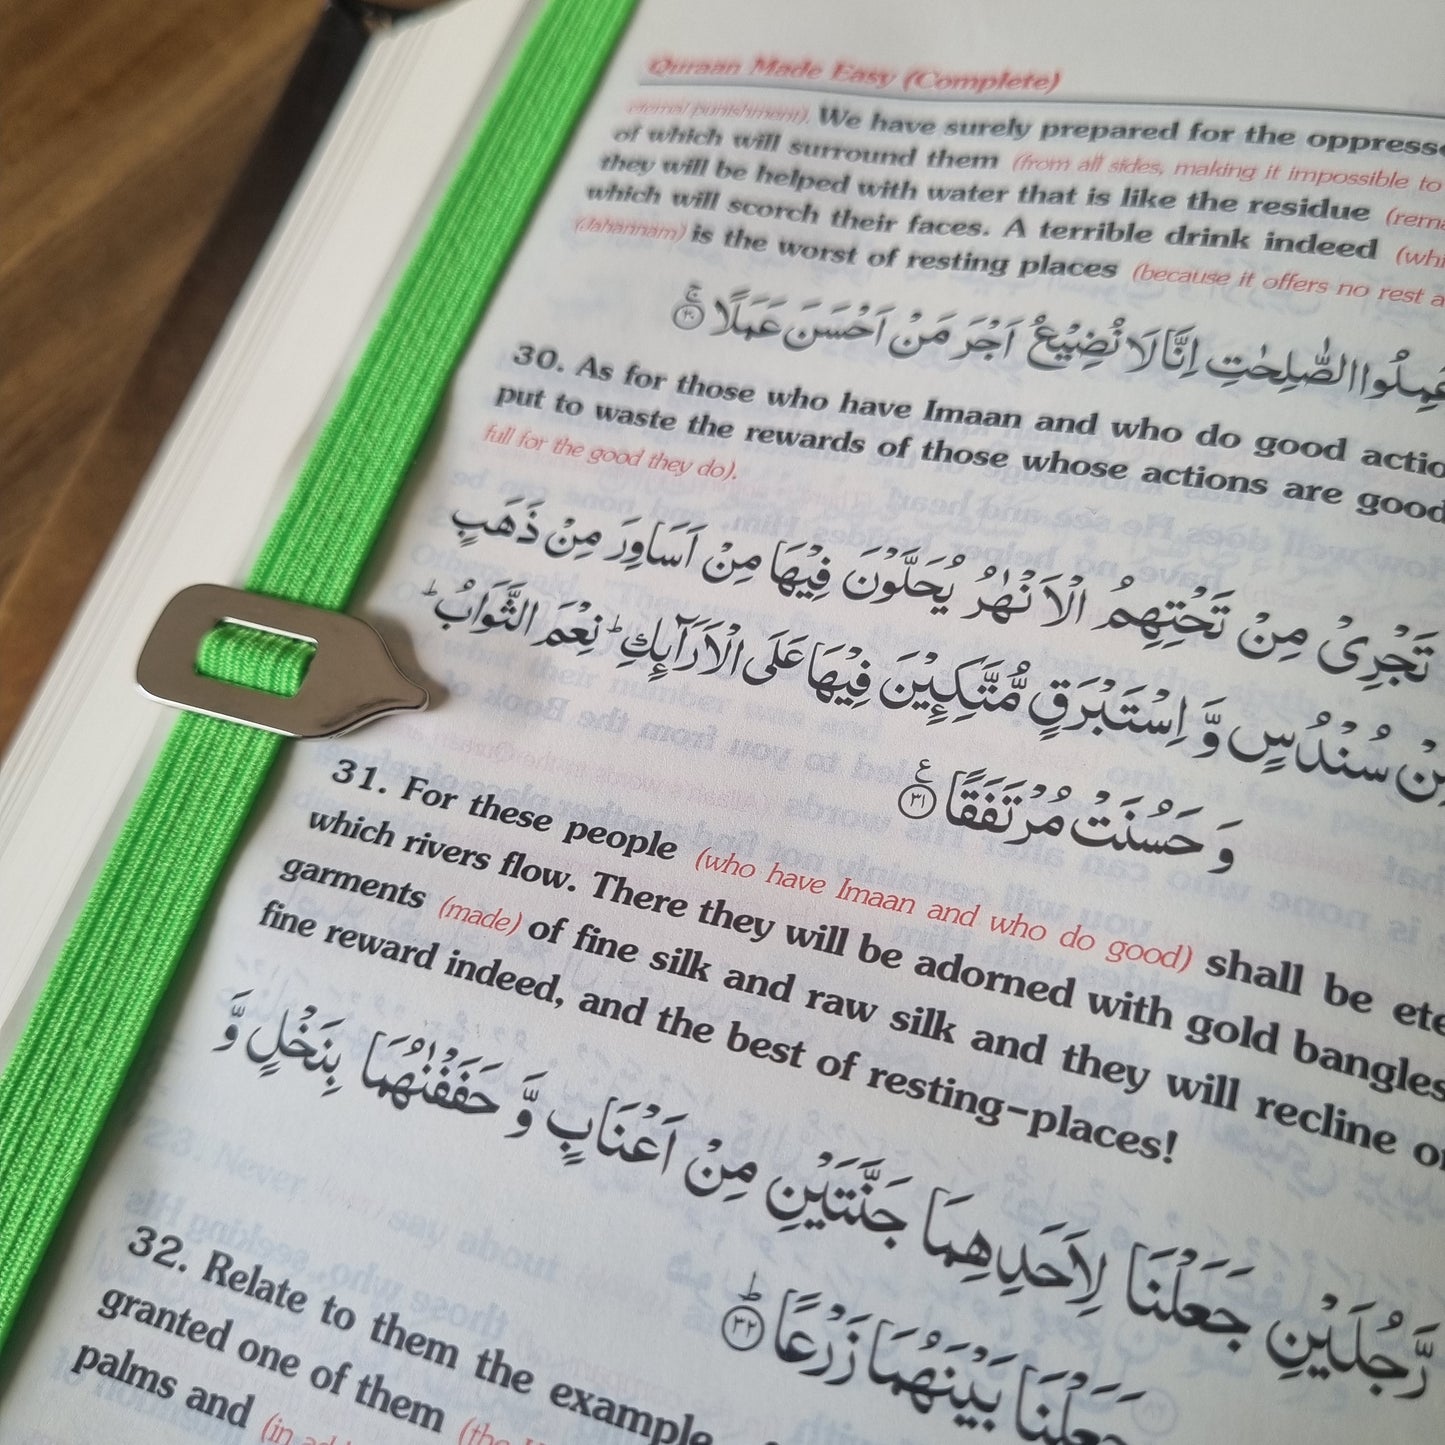 Quraan Made Easy (Complete)
eternal punishment). We have surely prepared for the
of which will surround them (from all sides, making it impossible to
they will be helped with water that is like the residue
which will scorch their faces. A terrible drink indeed
(Jahannam) is the worst of resting places (because it offers no rest
الصّٰلِحٰتِ اِنَّا لَا نُضِيْعُ اَجْرَ مَنْ اَحْسَنَ عَمَلًا ۚ ﴿۳۰﴾
30. As for those who have Imaan and who do good
put to waste the rewards of those whose actions are good
full for the good they do).
تَجْرِيْ مِنْ تَحْتِهِمُ الْاَنْهٰرُ يُحَلَّوْنَ فِيْهَا مِنْ اَسَاوِرَ مِنْ ذَهَبٍ
سُنْدُسٍ وَّ اِسْتَبْرَقٍ مُّتَّكِـِٕيْنَ فِيْهَا عَلَى الْاَرَآئِكِ ؕ نِعْمَ الثَّوَابُ ؕ
وَ حَسُنَتْ مُرْتَفَقًا ﴿۳۱﴾ ع
31. For these people (who have Imaan and who do good) shall be
which rivers flow. There they will be adorned with gold bangles
garments (made) of fine silk and raw silk and they will recline
fine reward indeed, and the best of resting-places!
رَّجُلَيْنِ جَعَلْنَا لِاَحَدِهِمَا جَنَّتَيْنِ مِنْ اَعْنَابٍ وَّ حَفَفْنٰهُمَا بِنَخْلٍ وَّ
جَعَلْنَا بَيْنَهُمَا زَرْعًا ؕ ﴿۳۲﴾
32. Relate to them the example
granted one of them (the
palms and (in